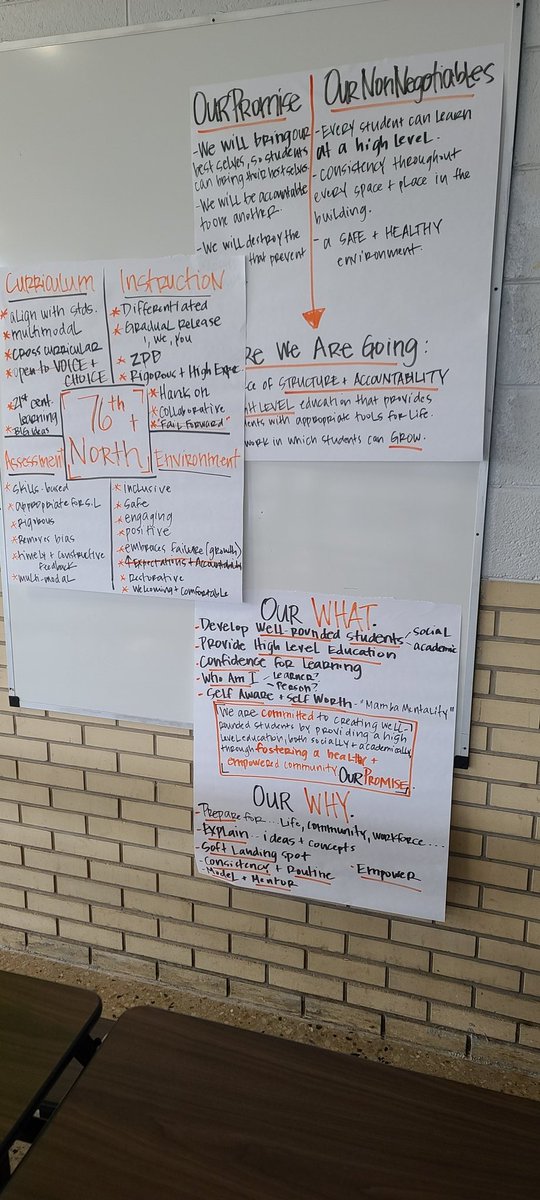 OUR PROMISE
- We will bring our
best selves, so students
can bring their best selves
- We will be accountable
to one another.
- We will destroy the
that prevent
OUR NonNegotiables
- Every student can learn
at a high level.
- consistency throughout
every space + place in the
building.
- a SAFE + HEALTHY
environment.
We Are Going:
of STRUCTURE + ACCOUNTABILITY
LEVEL education that provides
with appropriate tools for life.
in which students can GROW.
Curriculum
* align with stds.
* multimodal
* cross curricular
* open to VOICE +
CHOICE
* 21st cent.
learning
* BIG ideas
Instruction
* Differentiated
* Gradual Release
I, we, you
* ZPD
* Rigorous + High Expec
* Hank on
* collaborative
* "Fail Forward"
76th +
North
Assessment
* skills-based
* appropriate for S.L
* Rigorous
* Removes bias
* timely + constructive
feedback
* multi-modal
Environment
* inclusive
* safe
* engaging
* positive
* embraces failure (growth)
* ↑ Expectations + Accountability
* Restorative
* welcoming + comfortable
OUR WHAT.
- Develop well-rounded students social
academic
- Provide High Level Education
- Confidence for Learning
- Who Am I Learner?
Person?
- Self Aware + Self Worth - "Mamba Mentality"
We are committed to creating well-
rounded students by providing a high
level education, both socially + academically
through fostering a healthy +
empowered community OUR PROMISE.
OUR WHY.
- Prepare for... Life, community, workforce....
- Explain... ideas + concepts
- Soft Landing spot
- Consistency + Routine - Empower
- Model + Mentor